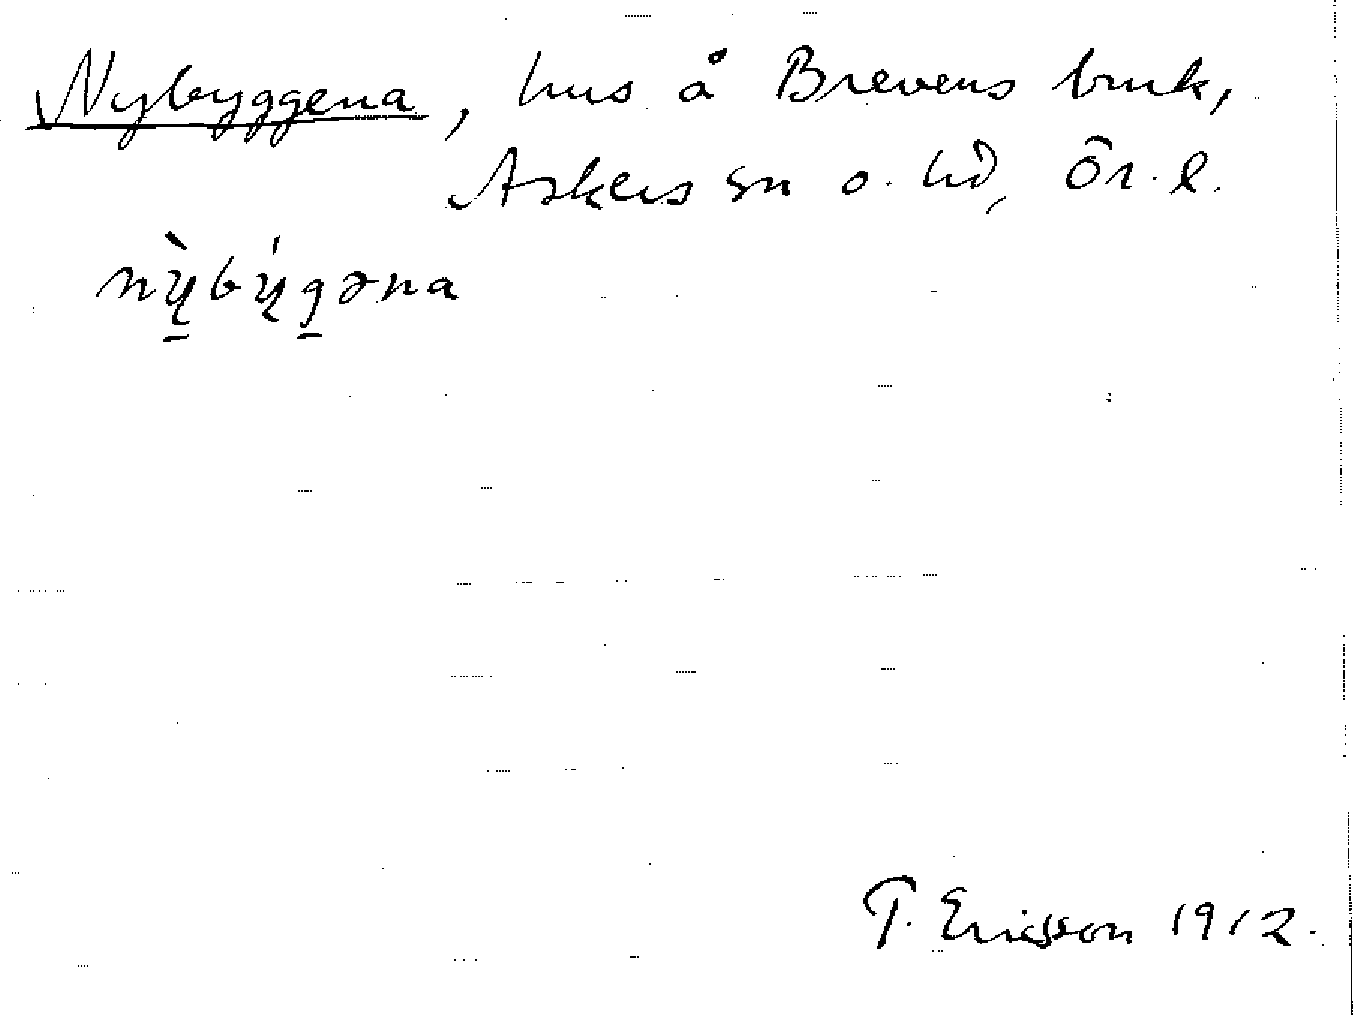 Nybyggena, hus å Brevens bruk,
Askers sn o. hd, Ör. l.
nỳ̠býg̠əna
T. Ericsson 1912.